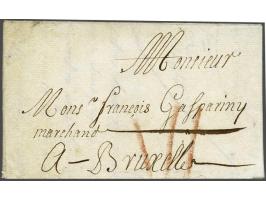 Monsieur
Mons.r françois Gaspariny
marchand
A - Bruxelle
VII